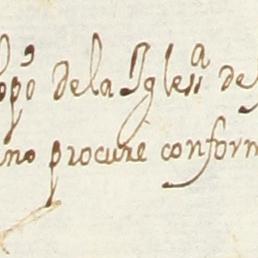 opo de la Iglesª de
no procure conform